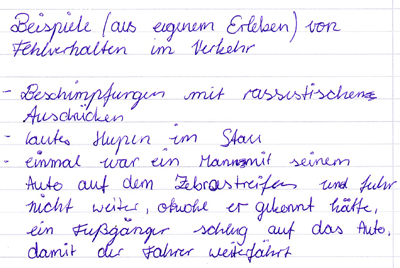 Beispiele (aus eigenem Erleben) von
Fehlverhalten im Verkehr
- Beschimpfungen mit rassistischen
Ausdrücken
- lautes Hupen im Stau
- einmal war ein Mann mit seinem
Auto auf dem Zebrastreifen und fuhr
nicht weiter, obwohl er gekonnt hätte,
ein Fußgänger schlug auf das Auto,
damit der Fahrer weiterfährt